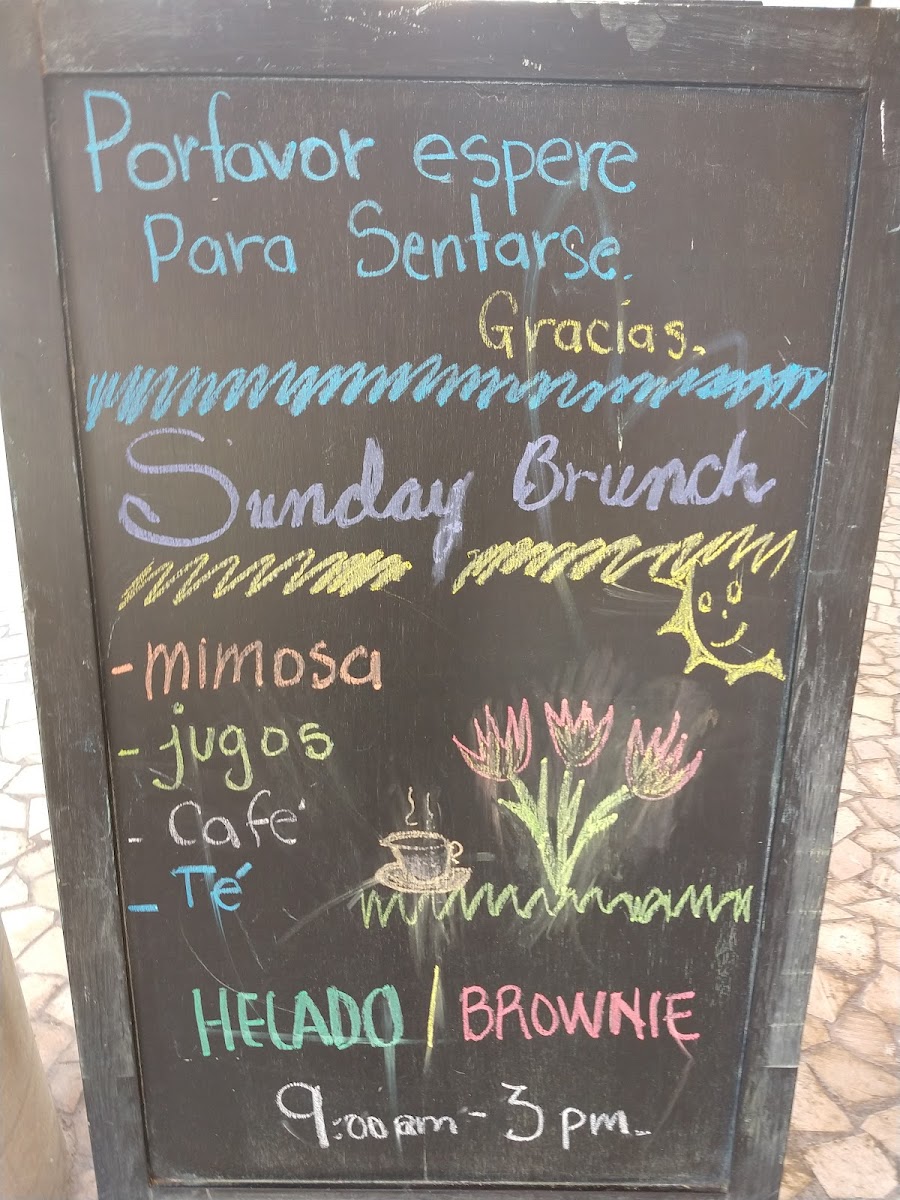 Porfavor espere
Para Sentarse.
Gracias.
Sunday Brunch
- mimosa
- jugos
- Café
- Té
HELADO | BROWNIE
9:00 am - 3 pm.